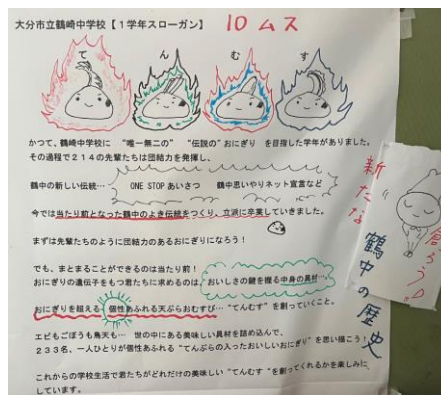 大分市立鶴崎中学校【1学年スローガン】 10ムス
て ん む す
かつて、鶴崎中学校に “唯一無二の” “伝説の”おにぎり を目指した学年がありました。
その過程で214の先輩たちは団結力を発揮し、
鶴中の新しい伝統… ONE STOP あいさつ 鶴中思いやりネット宣言など
今では当たり前となった鶴中のよき伝統をつくり、立派に卒業していきました。
まずは先輩たちのように団結力のあるおにぎりになろう!
でも、まとまることができるのは当たり前!
おにぎりの遺伝子をもつ君たちに求めるのは、おいしさの鍵を握る中身の具材…
おにぎりを超える 個性あふれる天ぷらおむすび…“てんむす”を創っていくこと。
エビもごぼうも鳥天も… 世の中にある美味しい具材を詰め込んで、
233名、一人ひとりが個性あふれる“てんぷらの入ったおいしいおにぎり”を思い描こう!
これからの学校生活で君たちがどれだけの美味しい“てんむす”を創ってくれるかを楽しみに
しています。
新たな
鶴中の歴史
創ろう♪